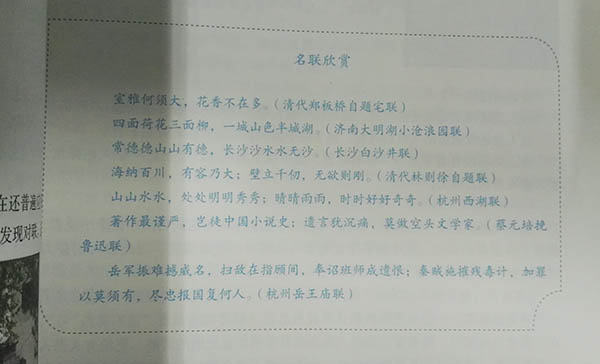 名联欣赏
室雅何须大，花香不在多。（清代郑板桥自题宅联）
四面荷花三面柳，一城山色半城湖。（济南大明湖小沧浪园联）
常德德山山有德，长沙沙水水无沙。（长沙白沙井联）
海纳百川，有容乃大；壁立千仞，无欲则刚。（清代林则徐自题联）
山山水水，处处明明秀秀；晴晴雨雨，时时好好奇奇。（杭州西湖联）
著作最谨严，岂徒中国小说史；遗言犹沉痛，莫做空头文学家。（蔡元培挽
鲁迅联）
岳军振难撼威名，扫敌在指顾间，奉诏班师成遗恨；秦贼施摧残毒计，加罪
以莫须有，尽忠报国复何人。（杭州岳王庙联）
在还普遍
发现对联